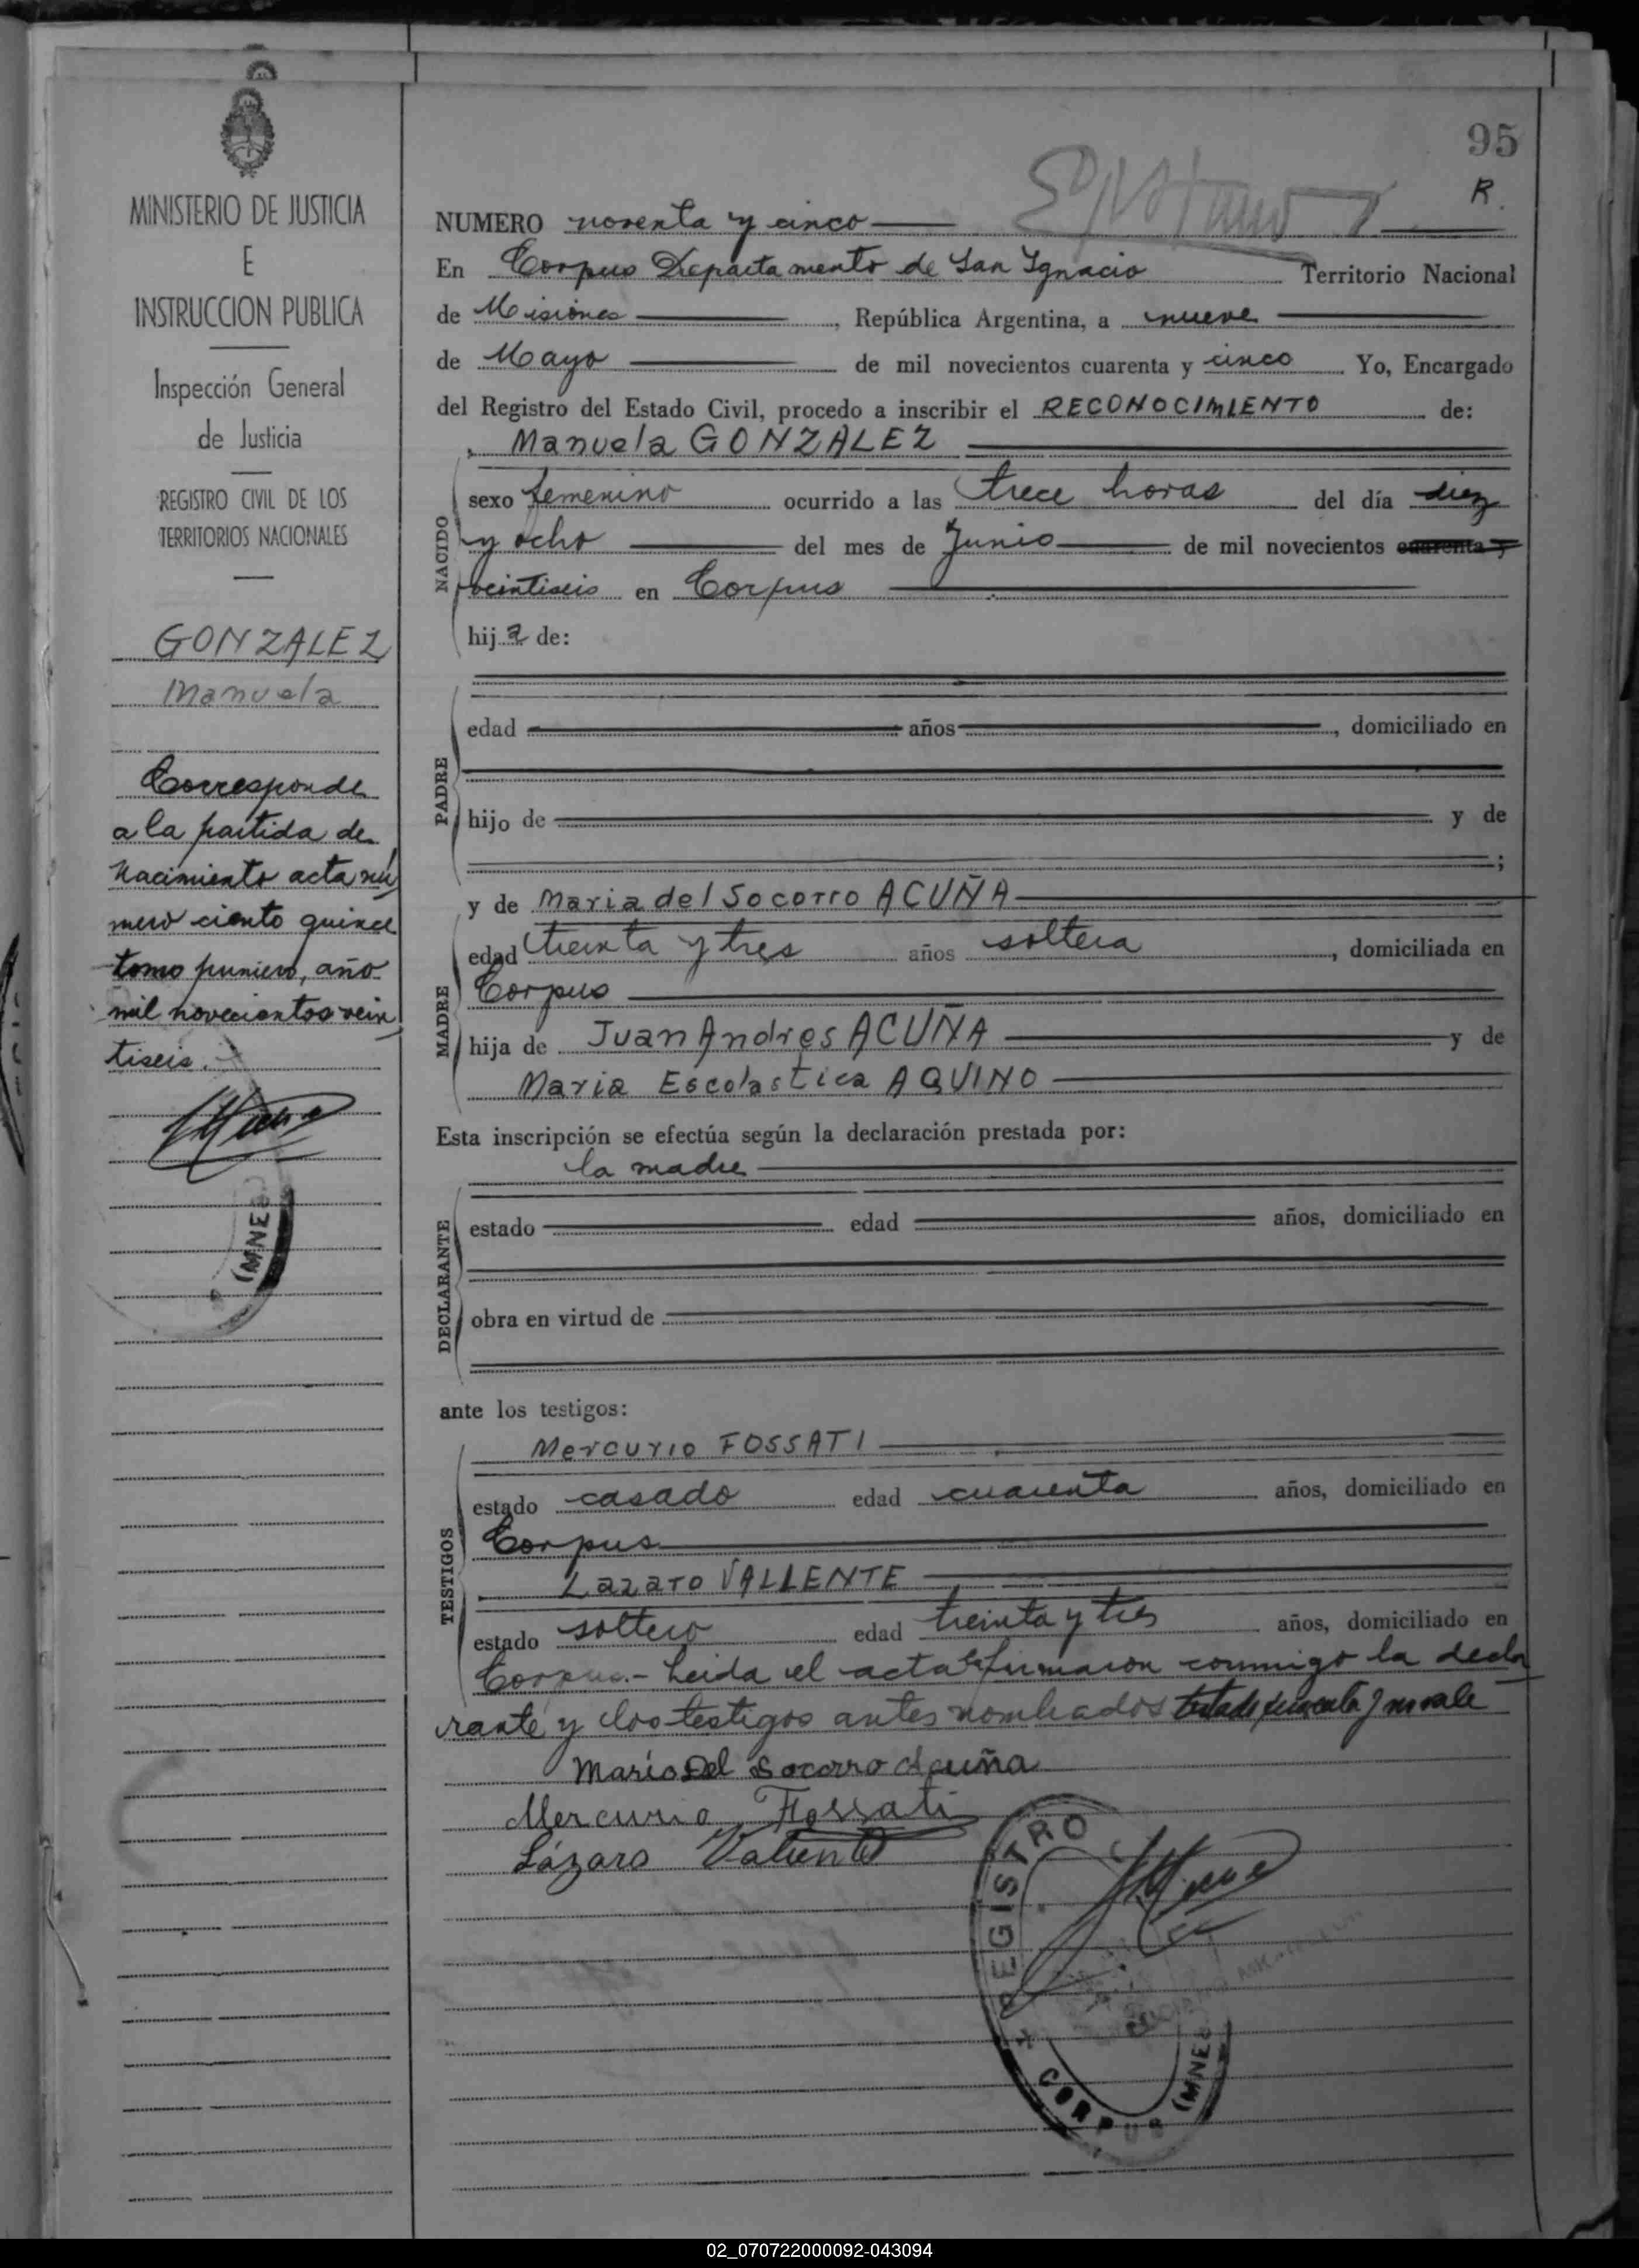 95
R.
MINISTERIO DE JUSTICIA
E
INSTRUCCION PUBLICA
Inspección General
de Justicia
REGISTRO CIVIL DE LOS
TERRITORIOS NACIONALES
GONZALEZ
Manuela
Corresponde
a la partida de
Nacimiento acta nú
mero ciento quince
tomo primero, año
mil novecientos vein
tiseis.
(MNES)
NUMERO noventa y cinco
En Corpus Departamento de San Ignacio Territorio Nacional
de Misiones, República Argentina, a nueve
de Mayo de mil novecientos cuarenta y cinco Yo, Encargado
del Registro del Estado Civil, procedo a inscribir el RECONOCIMIENTO de:
Manuela GONZALEZ
NACIDO
sexo femenino ocurrido a las trece horas del día diez
y ocho del mes de Junio de mil novecientos cuarenta y
veintiseis en Corpus
hija de:
PADRE
edad años, domiciliado en
hijo de y de
;
MADRE
y de Maria del Socorro ACUÑA
edad treinta y tres años soltera, domiciliada en
Corpus
hija de Juan Andres ACUÑA y de
Maria Escolastica AQUINO
Esta inscripción se efectúa según la declaración prestada por:
la madre
DECLARANTE
estado edad años, domiciliado en
obra en virtud de
ante los testigos:
TESTIGOS
Mercurio FOSSATI
estado casado edad cuarenta años, domiciliado en
Corpus
Lazaro VALLENTE
estado soltero edad treinta y tres años, domiciliado en
Corpus.- Leida el acta la firmaron conmigo la decla
rante y los testigos antes nombrados testado cuarenta y no vale
Maria Del Socorro Acuña
Mercurio Fossati
Lázaro Valiente
REGISTRO
CORPUS (MNES)
02_070722000092-043094